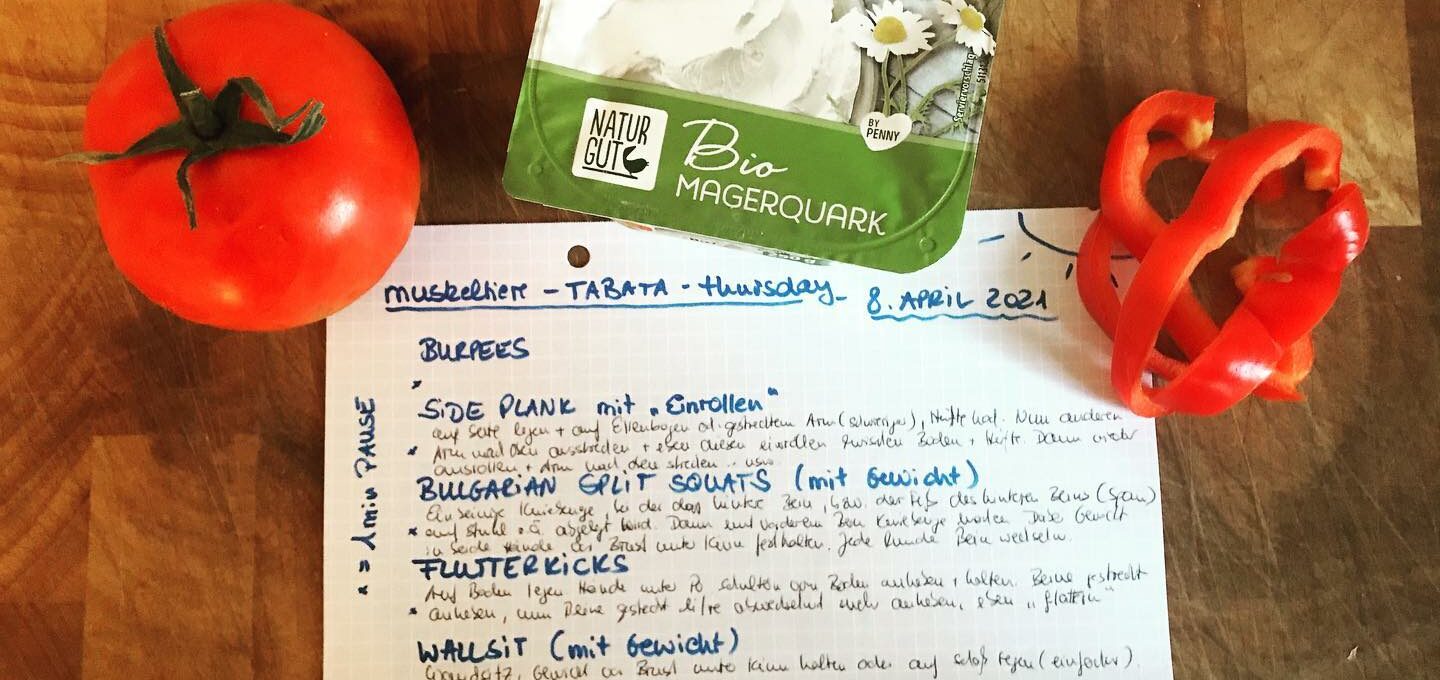 Serviervorschlag
BY
PENNY
NATUR
GUT
Bio
MAGERQUARK
muskeltiere - TABATA - thursday - 8. APRIL 2021
BURPEES
*
* = 1 min PAUSE
SIDE PLANK mit „Einrollen“
auf Seite legen + auf Ellenbogen od. gestrecktem Arm (schwieriger), Hüfte hoch. Nun anderen
* Arm nach oben ausstrecken + eben diesen einrollen zwischen Boden + Hüfte. Dann wieder
ausrollen + Arm nach oben strecken .. usw.
BULGARIAN SPLIT SQUATS (mit Gewicht)
Einbeinige Kniebeuge, bei der das hintere Bein, bzw. der Fuß des hinteren Beins (Spann)
* auf Stuhl o.Ä. abgelegt wird. Dann mit vorderem Bein Kniebeuge machen. Dabei Gewicht
in beide Hände vor Brust unter Kinn festhalten. Jede Runde Bein wechseln.
FLUTTERKICKS
Auf Boden legen Hände unter Po Schultern vom Boden anheben + halten. Beine gestreckt
* anheben, nun Beine gestreckt abwechselnd mehr anheben, eben „flattern“
WALLSIT (mit Gewicht)
Wandsitz, Gewicht vor Brust unter Kinn halten oder auf Schoß legen (einfacher).